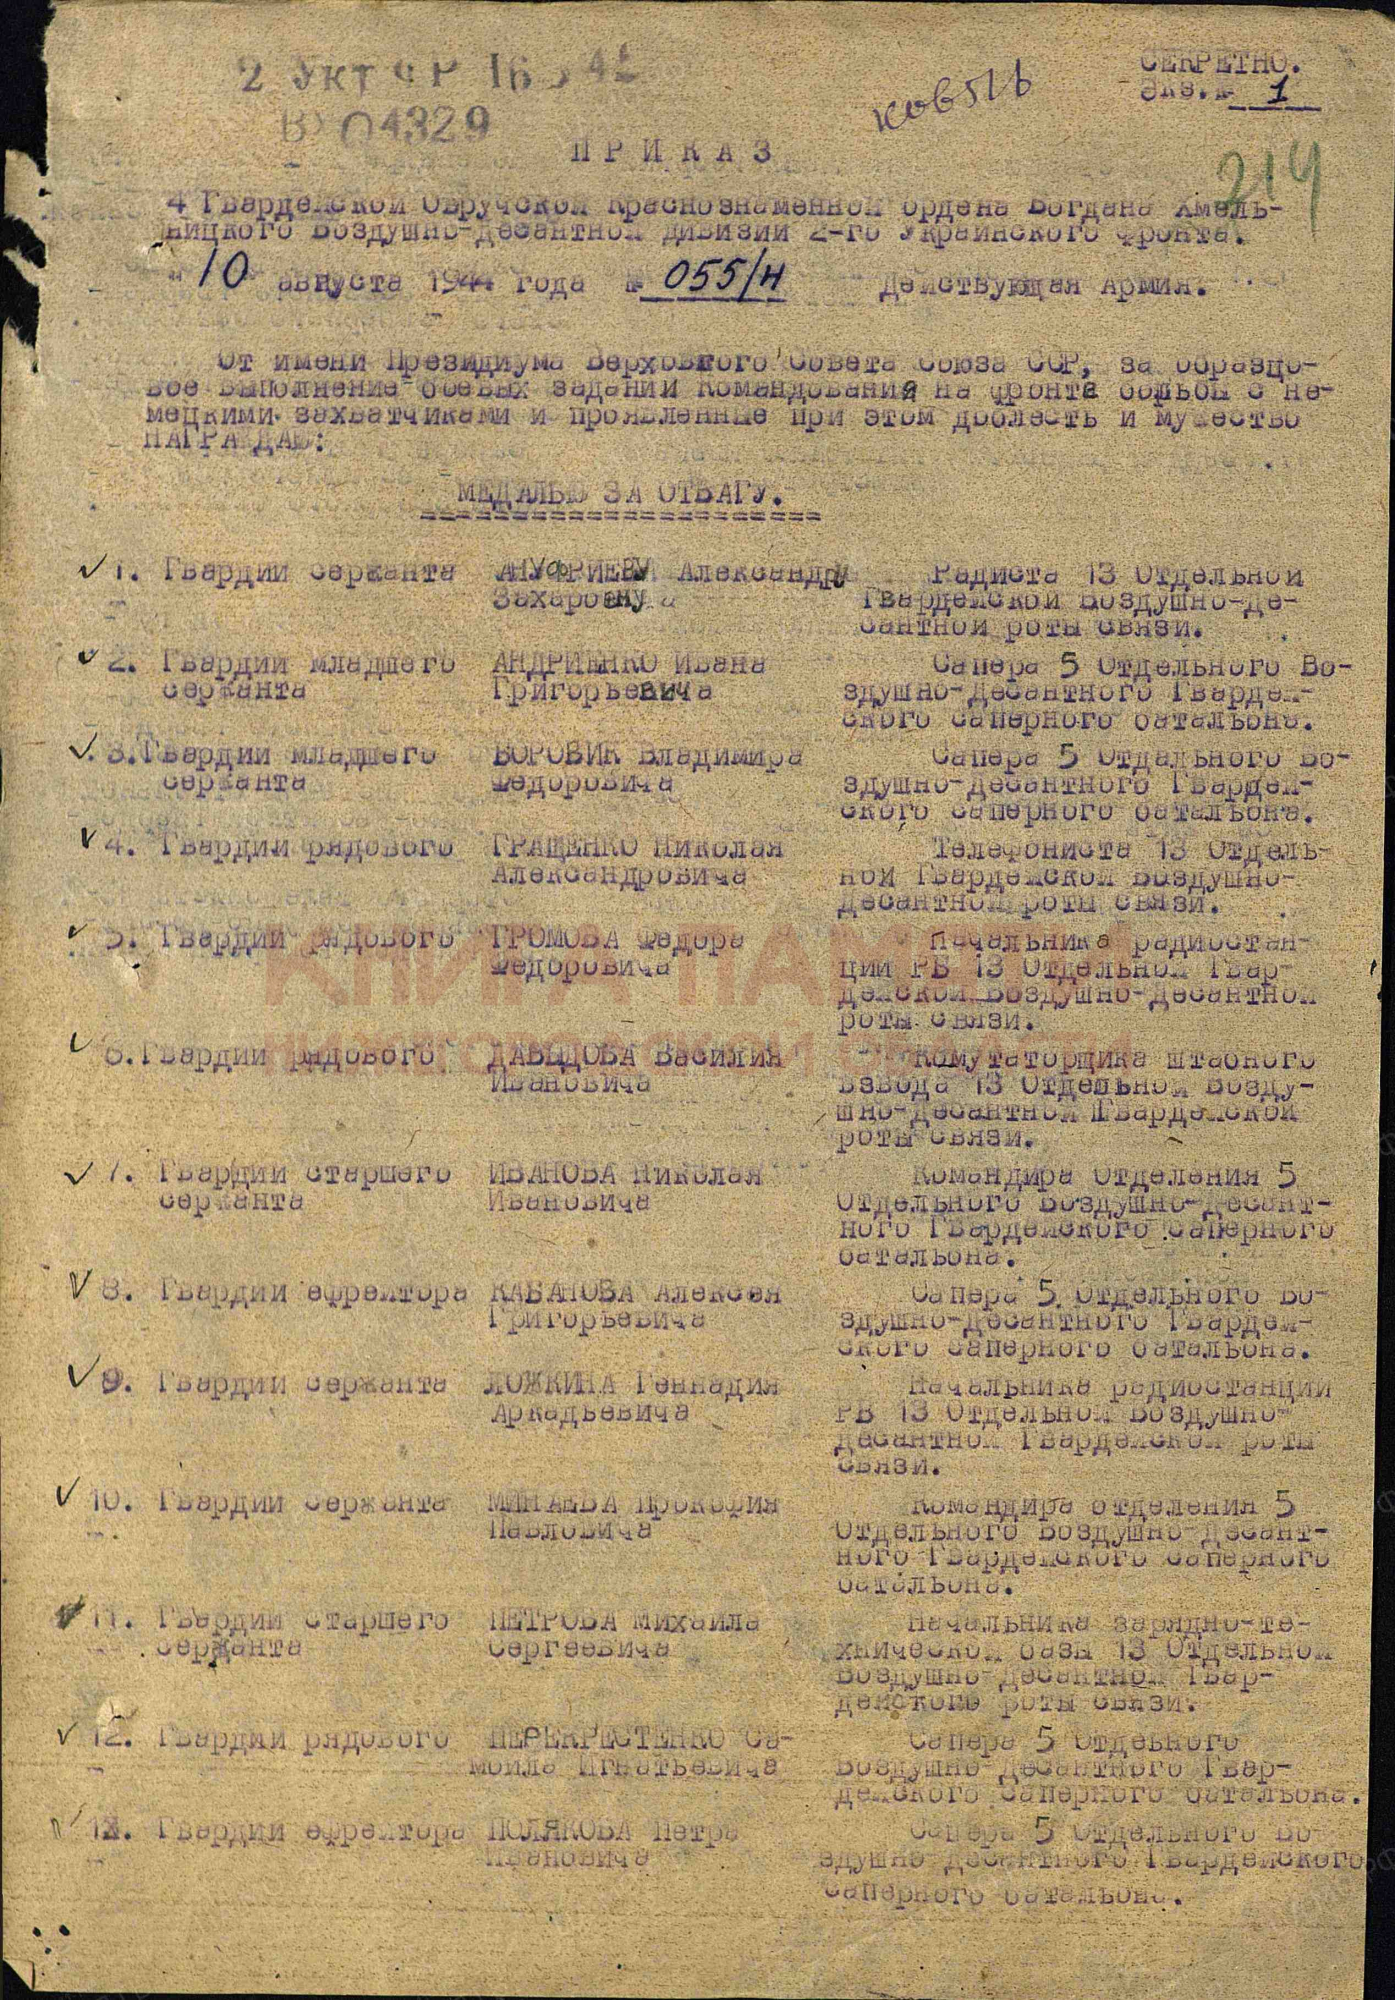 2 Укт ФР
В) 04329
СЕКРЕТНО.
Экз.№ 1
214
ПРИКАЗ
4 Гвардейской Овручской Краснознаменной ордена Богдана Хмель-
ницкого Воздушно-Десантной дивизии 2-го Украинского фронта.
"10 августа 1944 года № 055/Н Действующая Армия.
От имени Президиума Верховного Совета Союза ССР, за образцо-
вое выполнение боевых заданий Командования на фронте борьбы с не-
мецкими захватчиками и проявленные при этом доблесть и мужество
НАГРАЖДАЮ:
МЕДАЛЬЮ ЗА ОТВАГУ.
1. Гвардии сержанта АНУФРИЕВУ Александру Радиста 13 Отдельной
Захаровну Гвардейской Воздушно-Де-
сантной роты связи.
2. Гвардии младшего АНДРИЕНКО Ивана Сапера 5 Отдельного Во-
сержанта Григорьевича здушно-Десантного Гвардей-
ского саперного батальона.
3. Гвардии младшего БОРОВИК Владимира Сапера 5 Отдального Во-
сержанта Федоровича здушно-Десантного Гвардей-
ского саперного батальона.
4. Гвардии рядового ГРАЩЕНКО Николая Телефониста 13 Отдель-
Александровича ной Гвардейской Воздушно-
Десантной роты связи.
5. Гвардии рядового ГРОМОВА Федора Начальника радиостан-
Федоровича ции РБ 13 Отдельной Гвар-
дейской Воздушно-Десантной
роты связи.
6. Гвардии рядового ДАВЫДОВА Василия Комутаторщика штабного
Ивановича взвода 13 Отдельной Возду-
шно-Десантной Гвардейской
роты связи.
7. Гвардии старшего ИВАНОВА Николая Командира Отделения 5
сержанта Ивановича Отдельного Воздушно-Десант-
ного Гвардейского саперного
батальона.
8. Гвардии ефрейтора КАБАНОВА Алексея Сапера 5 Отдельного Во-
Григорьевича здушно-Десантного Гвардей-
ского саперного батальона.
9. Гвардии сержанта ЛОЖКИНА Геннадия Начальника радиостанции
Аркадьевича РБ 13 Отдельной Воздушно-
Десантной Гвардейской роты
связи.
10. Гвардии сержанта МИНАЕВА Прокофия Командира отделения 5
Павловича Отдельного Воздушно-Десант-
ного Гвардейского саперного
батальона.
11. Гвардии старшего ПЕТРОВА Михаила Начальника зарядно-те-
сержанта Сергеевича хнической базы 13 Отдельной
Воздушно-Десантной Гвар-
дейского роты связи.
12. Гвардии рядового ПЕРЕКРЕСТЕНКО Са- Сапера 5 Отдеьного
моила Игнатьевича Воздушно-Десантного Гвар-
дейского саперного батальона.
13. Гвардии ефрейтора ПОЛЯКОВА Петра Сапера 5 Отдельного Во-
Ивановича здушно-Десантного Гвардейского
саперного батальона.